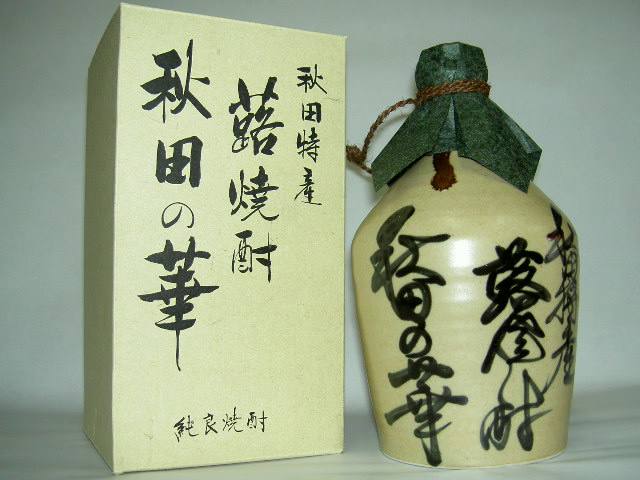 秋田特産
蕗焼酎
秋田の華
純良焼酎
秋田特産
蕗焼酎
秋田の華